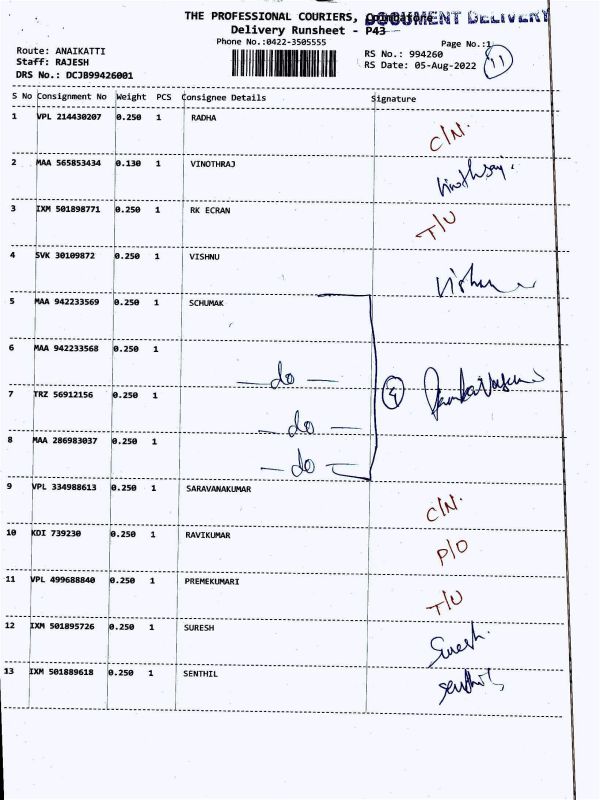 THE PROFESSIONAL COURIERS, Coimbatore
DOCUMENT DELIVERY
Delivery Runsheet - P43
Phone No.:0422-3505555
Page No.:1
Route: ANAIKATTI
RS No.: 994260
11
Staff: RAJESH
RS Date: 05-Aug-2022
DRS No.: DCJB99426001
S No Consignment No Weight PCS Consignee Details Signature
1 VPL 214430207 0.250 1 RADHA C/N.
2 MAA 565853434 0.130 1 VINOTHRAJ Vinothraj.
3 IXM 501898771 0.250 1 RK ECRAN T/U
4 SVK 30109872 0.250 1 VISHNU Vishnu
5 MAA 942233569 0.250 1 SCHUMAK
6 MAA 942233568 0.250 1 -do- 4
7 TRZ 56912156 0.250 1 -do-
8 MAA 286983037 0.250 1 -do-
9 VPL 334988613 0.250 1 SARAVANAKUMAR C/N.
10 KDI 739230 0.250 1 RAVIKUMAR P/O
11 VPL 499688840 0.250 1 PREMEKUMARI T/U
12 IXM 501895726 0.250 1 SURESH Suresh.
13 IXM 501889618 0.250 1 SENTHIL Senthil